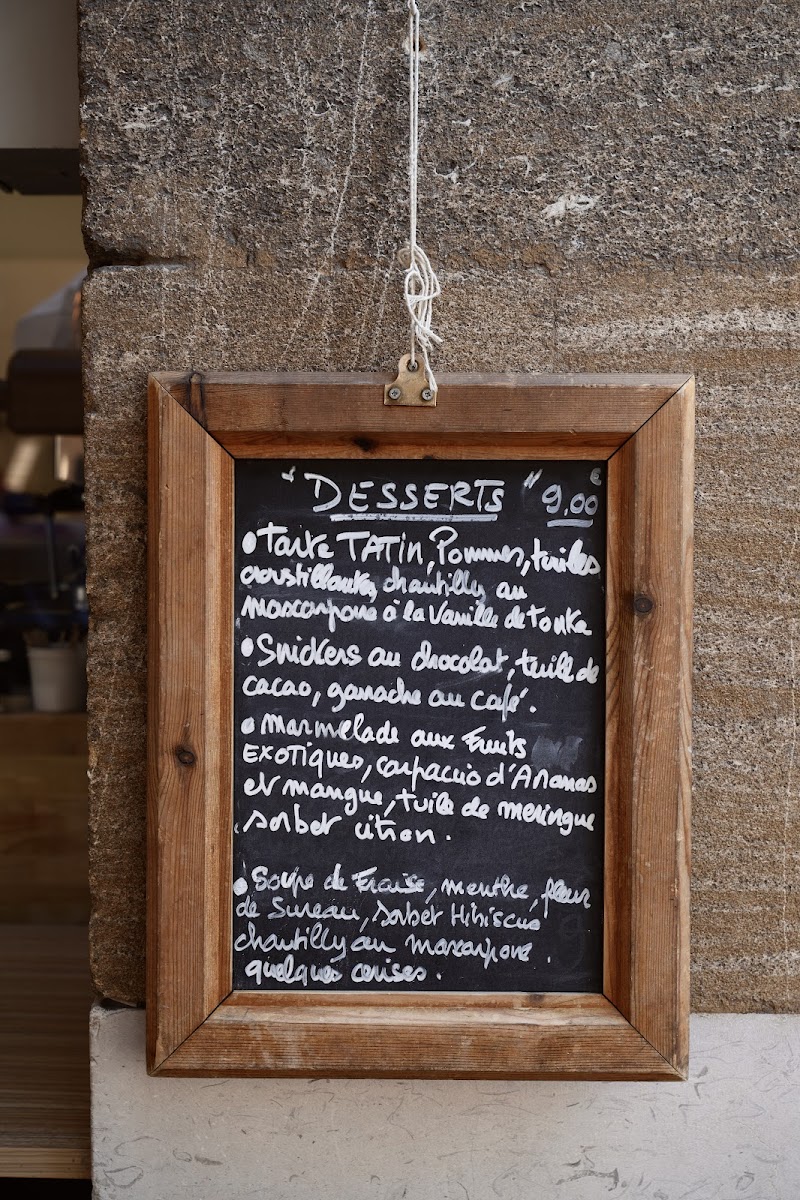 "DESSERTS" 9,00 €
• Tarte TATIN, Pommes, tuiles
croustillantes, chantilly au
mascarpone à la Vanille de Tonka
• Snickers au chocolat, tuile de
cacao, ganache au café.
• Marmelade aux Fruits
EXOTiques, carpaccio d'Ananas
et mangue, tuile de meringue
sorbet citron.
• Soupe de Fraise, menthe, fleur
de Sureau, sorbet Hibiscus
chantilly au mascarpone.
quelques cerises.